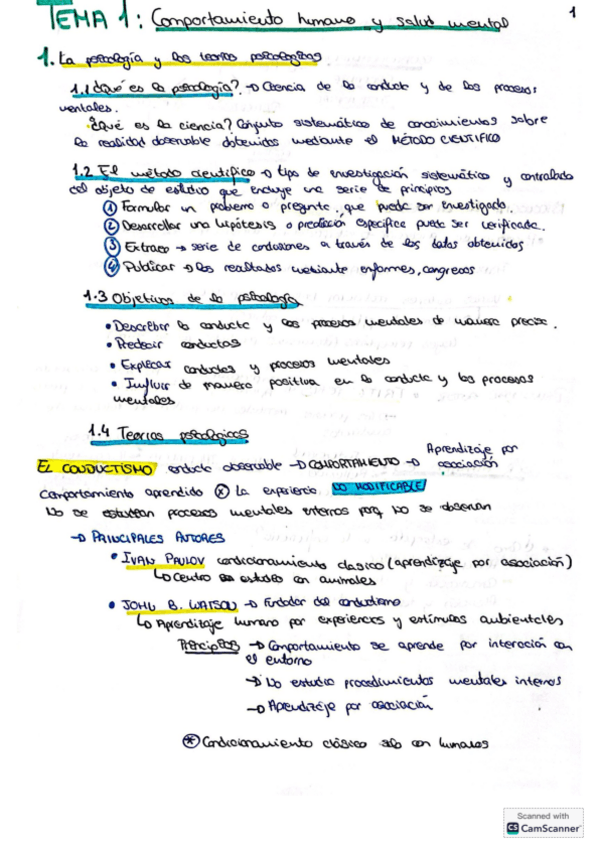 1
TEMA 1: Comportamiento humano y salud mental
1. La psicología y las teorías psicológicas
1.1 ¿Qué es la psicología? → Ciencia de la conducta y de los procesos
mentales.
¿Qué es la ciencia? Conjunto sistemático de conocimientos sobre
la realidad observable obtenidos mediante el MÉTODO CIENTÍFICO
1.2 El método científico → tipo de investigación sistemático y controlada
del objeto de estudio que incluye una serie de principios
① Formular un problema o pregunta que puede ser investigado.
② Desarrollar una hipótesis o predicción específica puede ser verificada.
③ Extraer → serie de conclusiones a través de los datos obtenidos
④ Publicar → los resultados mediante informes, congresos
1.3 Objetivos de la psicología
• Describir la conducta y los procesos mentales de manera precisa.
• Predecir conductas
• Explicar conductas y procesos mentales
• Influir de manera positiva en la conducta y los procesos
mentales.
1.4 Teorías psicológicas
EL CONDUCTISMO conducta observable → COMPORTAMIENTO → Aprendizaje por
asociación
Comportamiento aprendido ⊗ La experiencia NO MODIFICABLE
No se estudian procesos mentales internos porq no se observan
→ PRINCIPALES AUTORES
• IVAN PAULOV condicionamiento clásico (aprendizaje por asociación)
↳ Centro estudios con animales
• JOHN B. WATSON → Fundador del conductismo
↳ Aprendizaje humano por experiencias y estímulos ambientales
Principios → Comportamiento se aprende por interacción con
el entorno
→ No estudia procedimientos mentales internos
→ Aprendizaje por asociación
⊛ Condicionamiento clásico solo con humanos
Scanned with
CS CamScanner